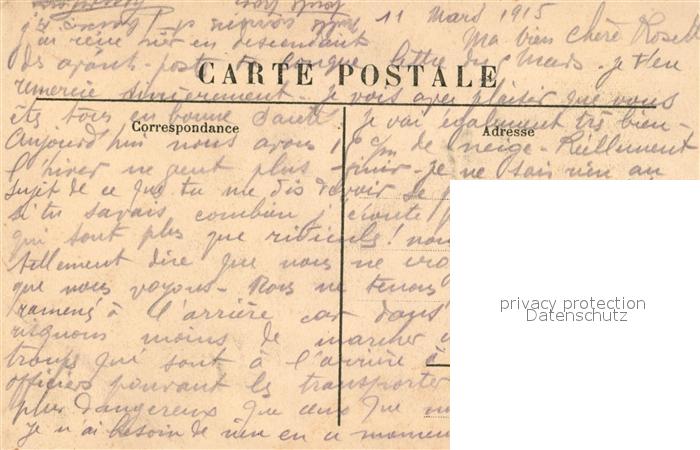 11 Mars 1915
Ma bien Chère
j'ai reçu hier en descendant
des avant-postes ta longue lettre du Mars. je t'en
CARTE POSTALE
remercie sincèrement. je vois avec plaisir que vous
êtes tous en bonne santé. Je vai également très bien.
Correspondance
Adresse
Aujourd'hui nous avons cm de neige. Réellement
l'hiver ne peut plus finir. Je ne sais rien au
sujet de ce que tu me dis devoir se
si tu savais combien j'écoute
qui sont plus que ridicules! nou
tellement dire que nous ne cro
que nous voyons. Nous ne tenons
ramené à l'arrière car dans
risquons moins de marcher
troupe qui sont à l'arrière à
officiers pouvant les transporter
plus dangereux que ceux que
Je n'ai besoin de rien en ce moment
privacy protection
Datenschutz